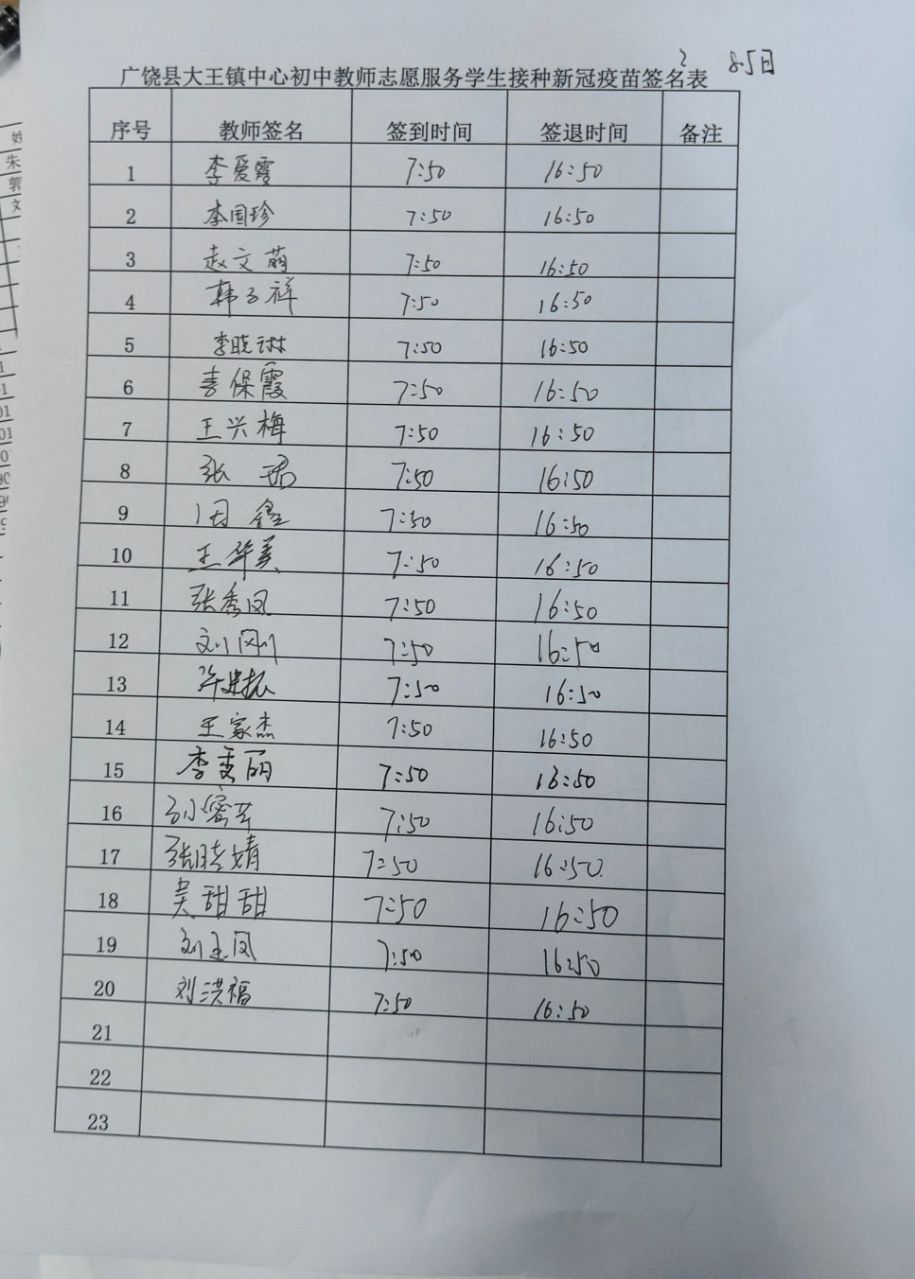 8.5日
广饶县大王镇中心初中教师志愿服务学生接种新冠疫苗签名表
序号 教师签名 签到时间 签退时间 备注
1 李爱霞 7:50 16:50
2 李国珍 7:50 16:50
3 赵文萌 7:50 16:50
4 韩子祥 7:50 16:50
5 李晓琳 7:50 16:50
6 李保霞 7:50 16:50
7 王兴梅 7:50 16:50
8 张 7:50 16:50
9 周鑫 7:50 16:50
10 王华美 7:50 16:50
11 张秀凤 7:50 16:50
12 刘刚 7:50 16:50
13 许建振 7:50 16:50
14 王家杰 7:50 16:50
15 李雯丽 7:50 16:50
16 孙小 7:50 16:50
17 张晓婧 7:50 16:50
18 吴甜甜 7:50 16:50
19 刘玉凤 7:50 16:50
20 刘洪福 7:50 16:50
21
22
23